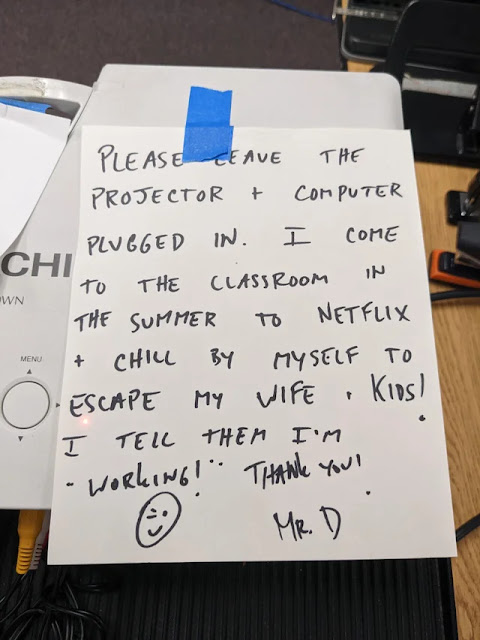 CHI
OWN
MENU
PLEASE LEAVE THE
PROJECTOR + COMPUTER
PLUGGED IN. I COME
TO THE CLASSROOM IN
THE SUMMER TO NETFLIX
+ CHILL BY MYSELF TO
ESCAPE MY WIFE + KIDS!
I TELL THEM I'M
"WORKING!" THANK YOU!
MR. D